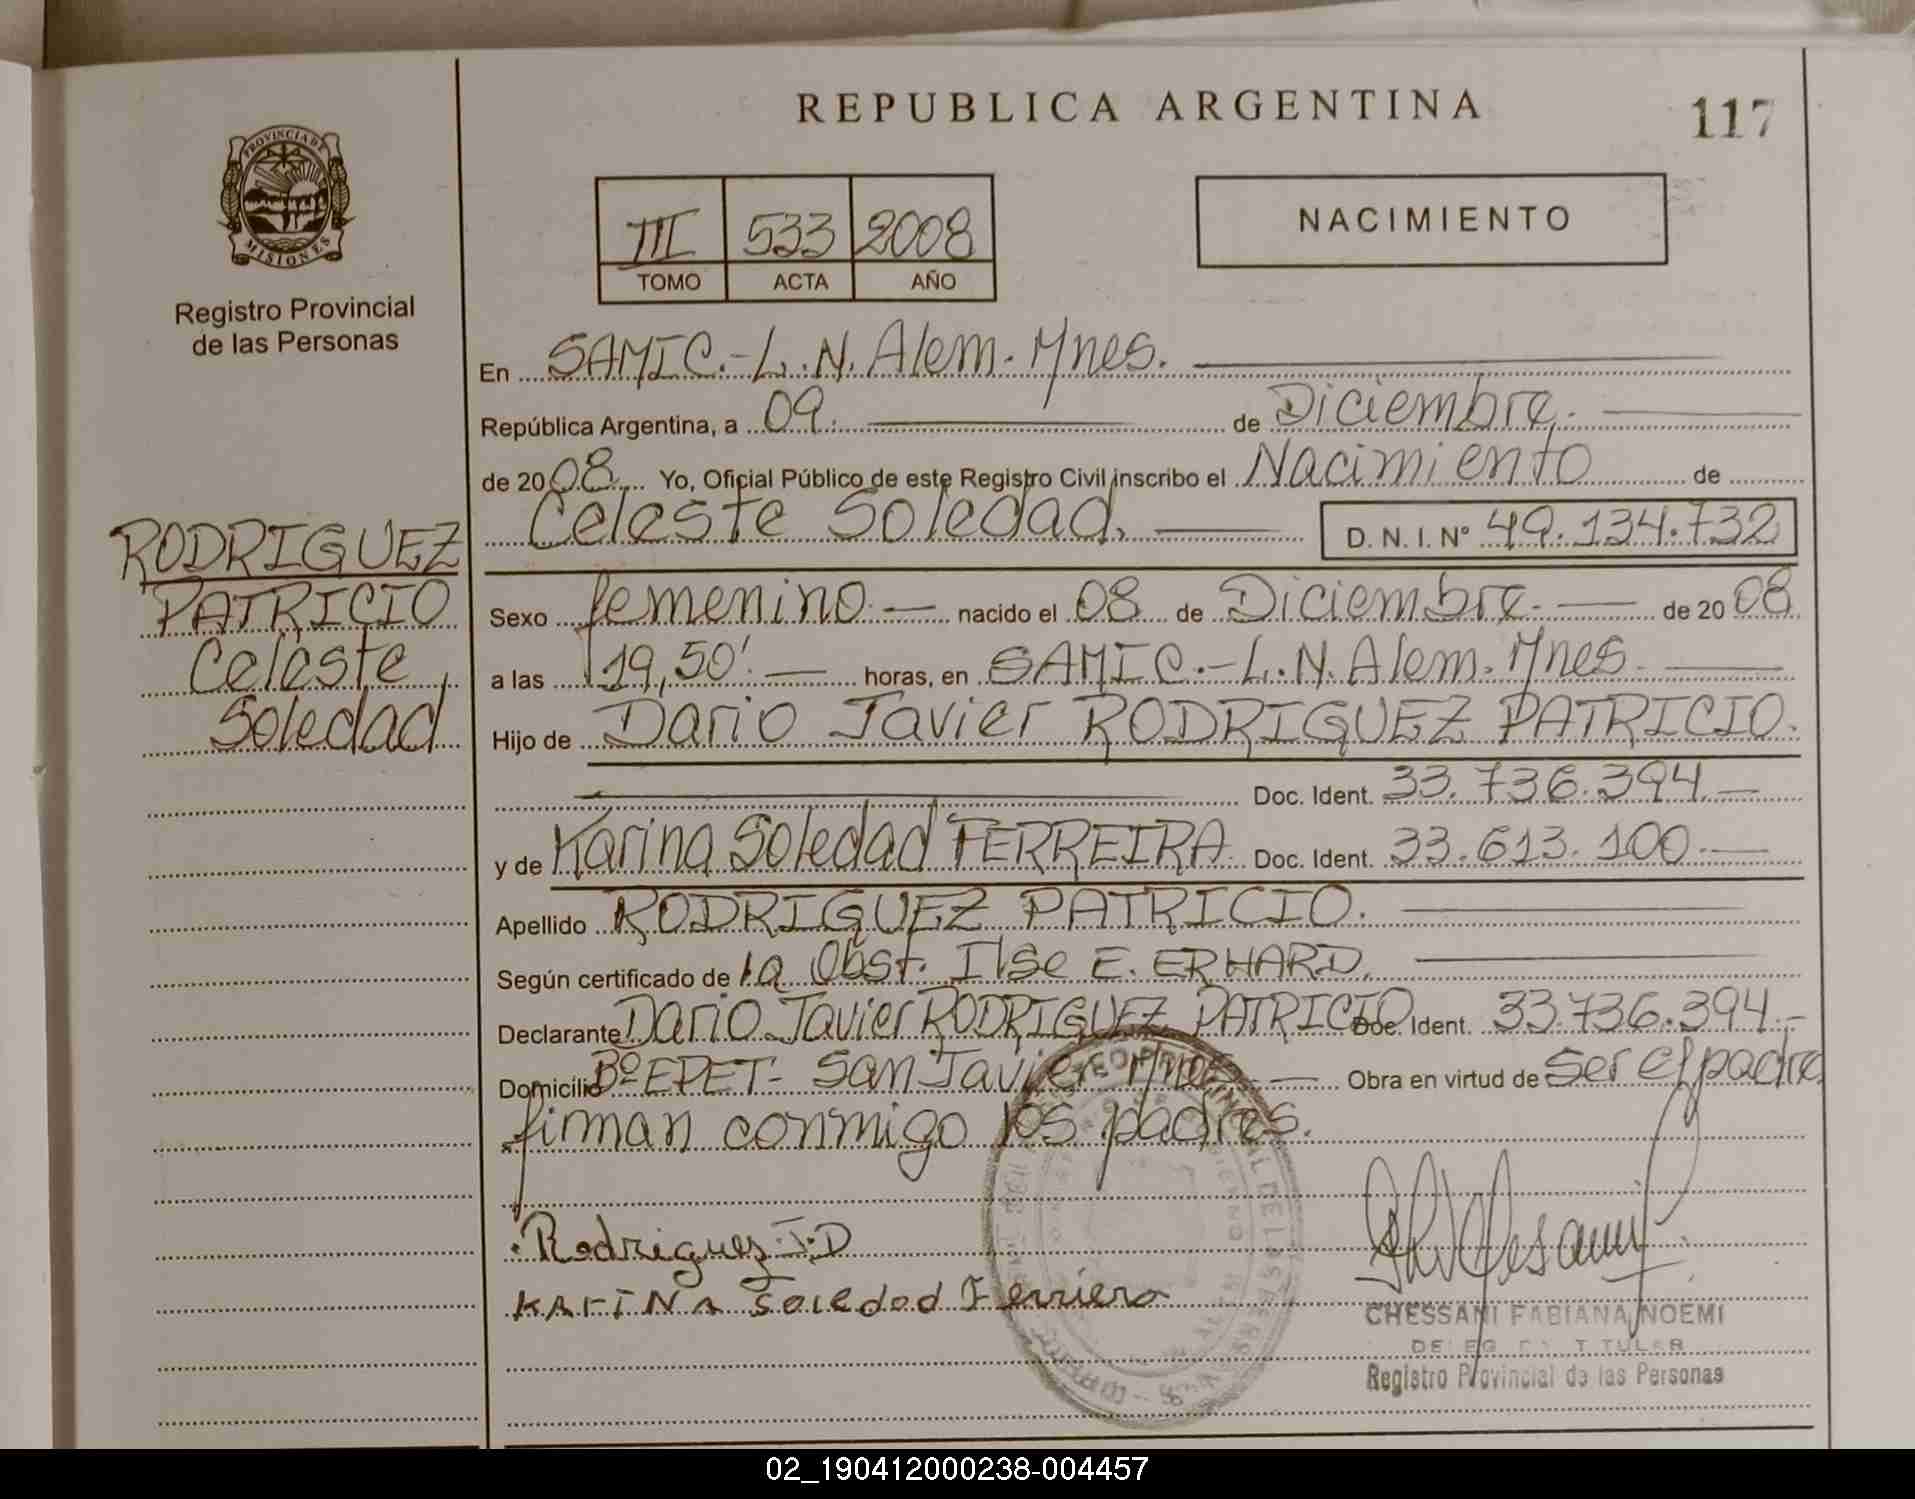 REPUBLICA ARGENTINA
117
PROVINCIA DE
MISIONES
Registro Provincial
de las Personas
III 533 2008
TOMO ACTA AÑO
NACIMIENTO
En SAMIC.-L.N. Alem. Mnes.
República Argentina, a 09. de Diciembre.
de 2008 Yo, Oficial Público de este Registro Civil inscribo el Nacimiento de
Celeste Soledad. D. N. I. Nº 49.134.732
RODRIGUEZ
PATRICIO
Celeste
Soledad
Sexo femenino.- nacido el 08 de Diciembre.- de 2008
a las 19,50'.- horas, en SAMIC.-L.N. Alem. Mnes.
Hijo de Dario Javier RODRIGUEZ PATRICIO.
Doc. Ident. 33.736.394.-
y de Karina Soledad FERREIRA. Doc. Ident. 33.613.100.-
Apellido RODRIGUEZ PATRICIO.
Según certificado de la Obst. Ilse E. ERHARD.
Declarante Dario Javier RODRIGUEZ PATRICIO Doc. Ident. 33.736.394.-
Domicilio Bº EPET- San Javier Mnes - Obra en virtud de Ser el padre
firman conmigo los padres.
Rodriguez J.D
KARINA Soledad Ferriera
CHESSANI FABIANA NOEMI
TITULAR
Registro Provincial de las Personas
02_190412000238-004457